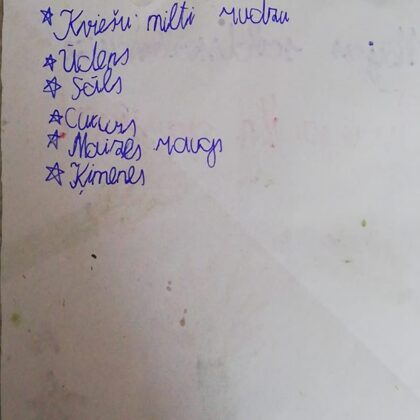 ☆ Kviešu milti rudzu
☆ Ūdens
☆ Sāls
☆ Cukurs
☆ Maizes raugs
☆ Ķimenes